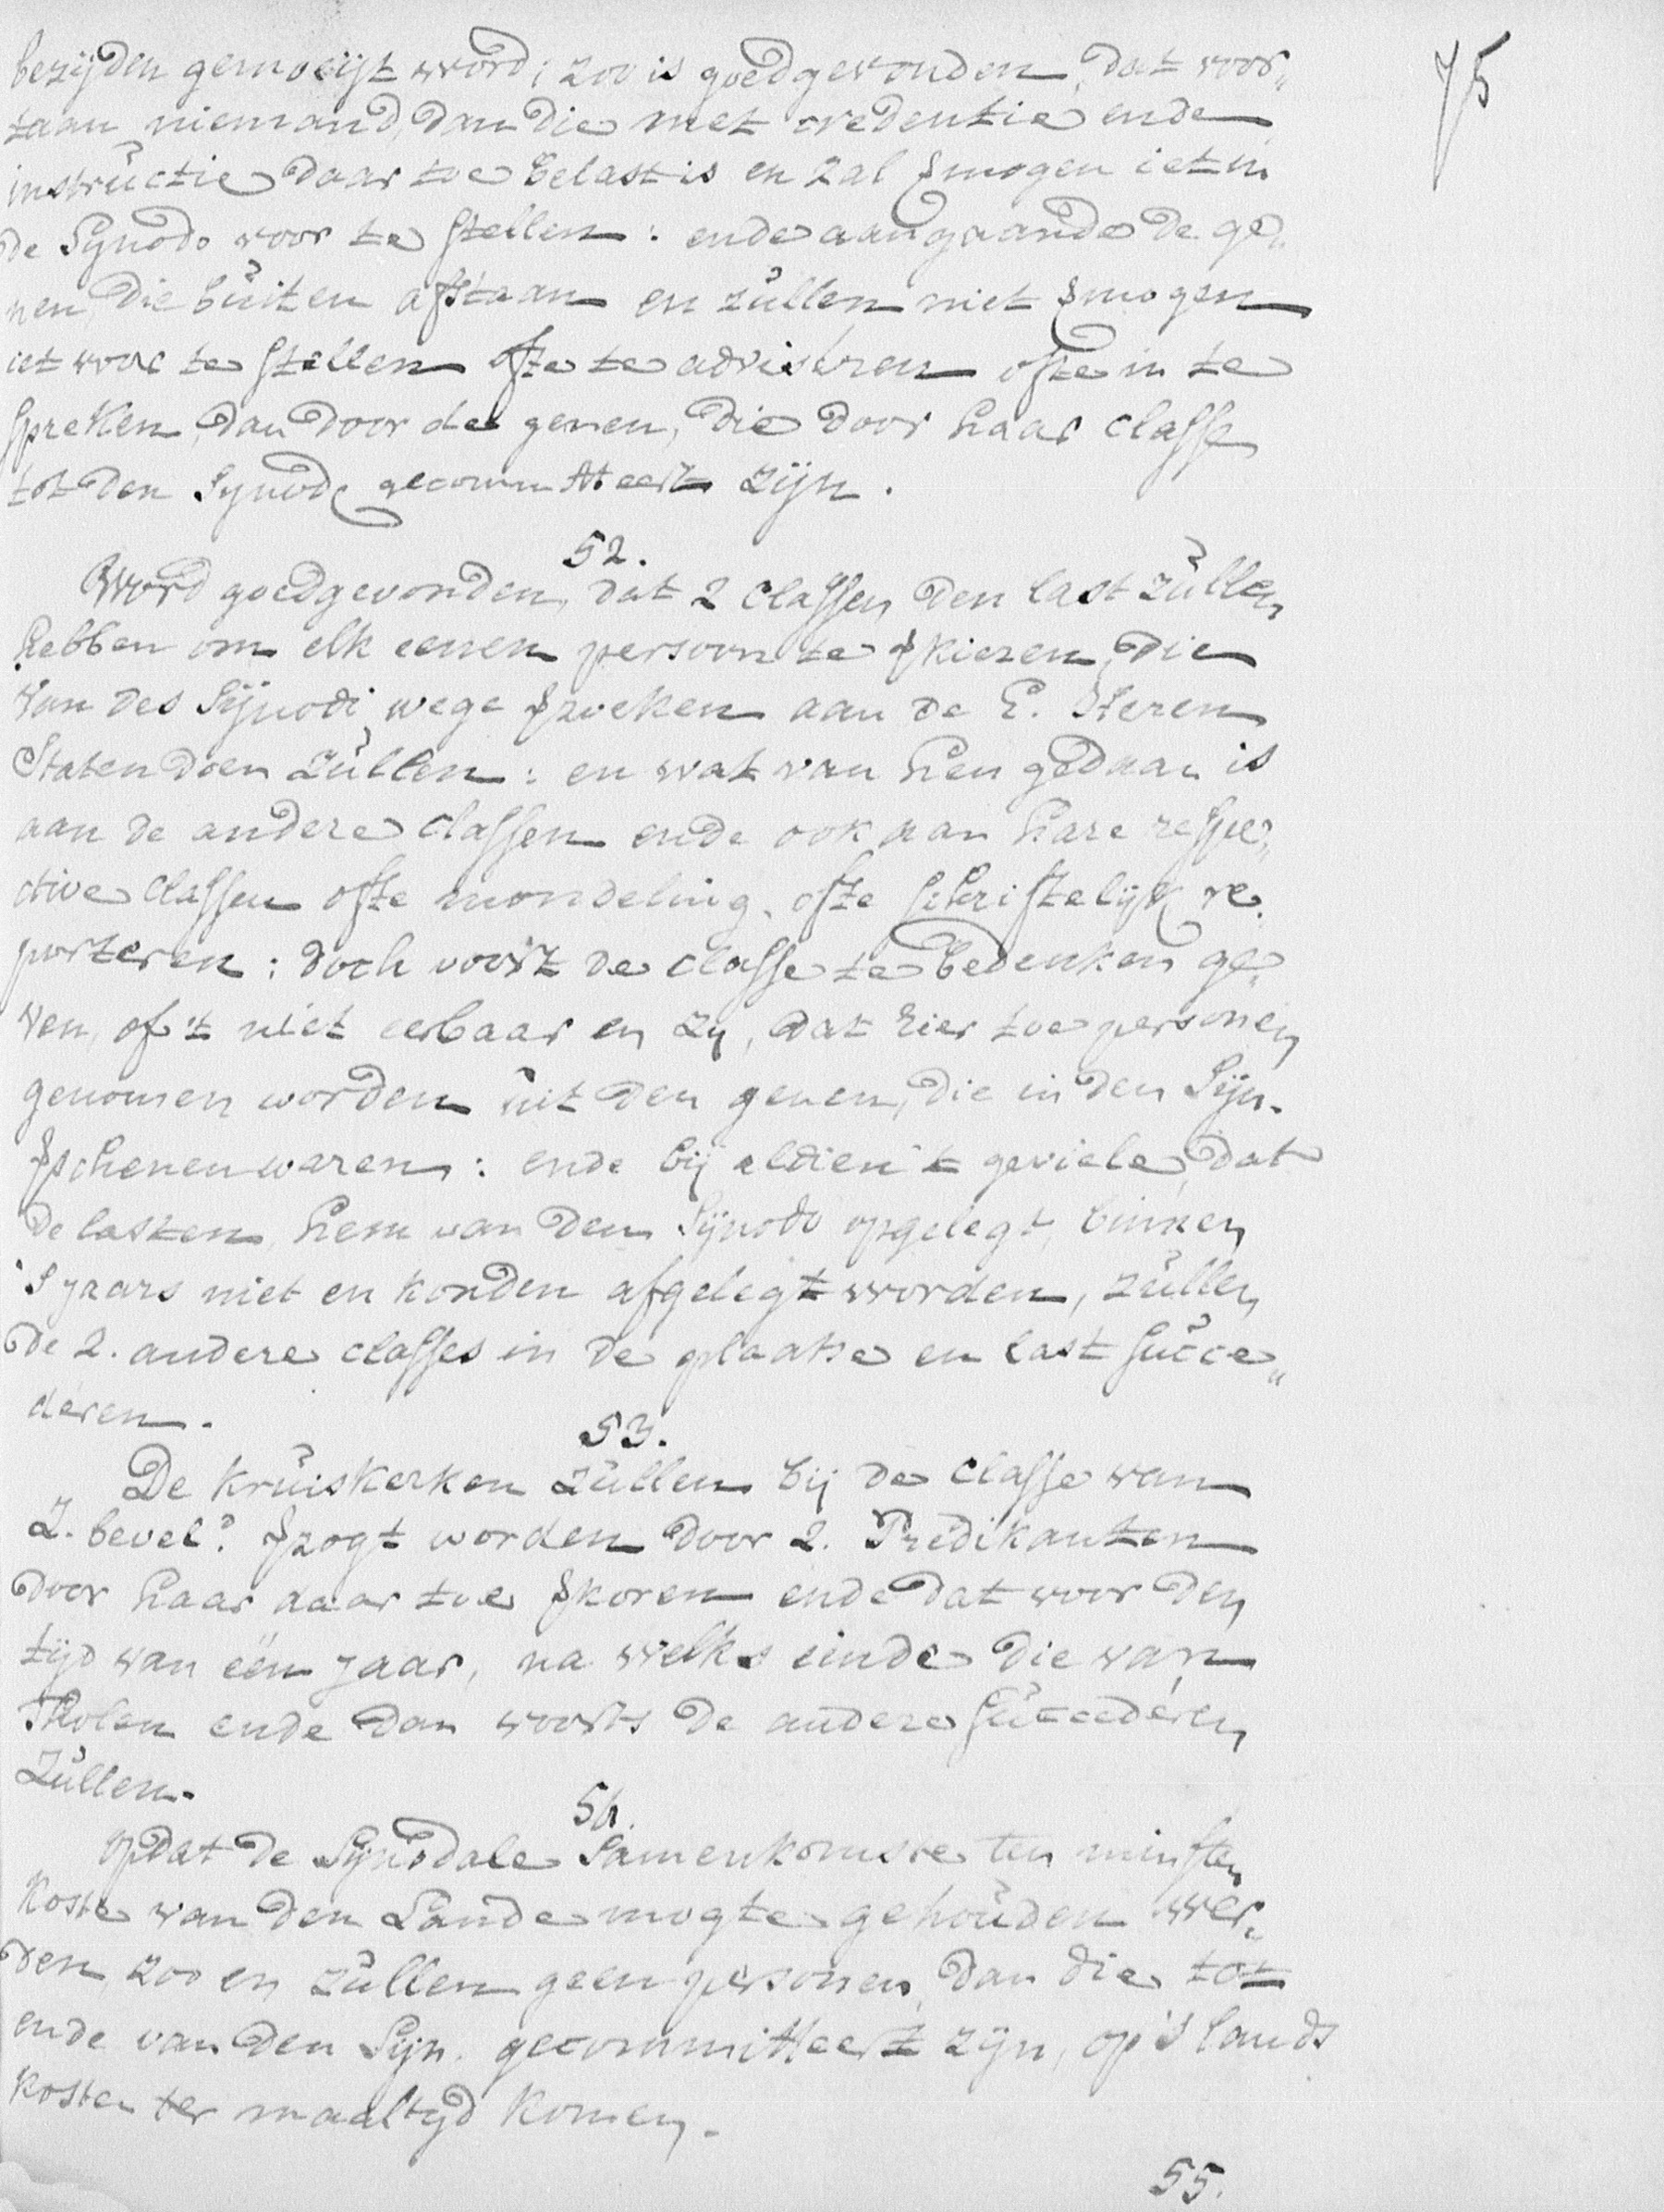 75
bezijden gemoeijt word; zoo is goedgevonden, dat voor„
taan niemand, dan die met credentie ende
instructie daar toe belast is en zal vermogen iet in
de Synodo voor te stellen: ende aangaande de ge„
nen, die buiten afstaan en zullen niet vermogen
iet voor te stellen ofte te adviseren ofte in te
spreken, dan door de genen, die door haar classe
tot den Synode gecommitteert zijn.
52.
Word goedgevonden, dat 2 classen den last zullen
hebben om elk eenen persoon te verkiezen, die
van des Sijnodi wege verzoeken aan de E. Heren
Staten doen zullen: en wat van hen gedaan is
aan de andere classen ende ook aan hare respe„
ctive classen ofte mondeling, ofte schriftelijk re„
porteren: doch voor't de classe te bedenken ge„
ven, of 't niet eerbaar en zy, dat hier toe personen
genomen worden uit den genen, die in den Sijn.
verschenen waren: ende bij aldien 't geviele, dat
de lasten, hem van den Sijnodo opgelegt, binnen
's jaars niet en konden afgelegt worden, zullen
de 2. andere classes in de plaatse en last succe„
deren.
53.
De kruiskerken zullen bij de classe van
Z. bevel? verzogt worden door 2. Predikanten
door haar daar toe verkoren ende dat voor den
tijd van één jaar, na welks einde die van
Tholen ende dan voorts de andere succederen
zullen.
54.
Opdat de Synodale samenkomste ten minsten
koste van den Lande mogte gehouden wer„
den, zoo en zullen geen personen, dan die tot
ende van den Sijn. gecommitteert zijn, op 's lands
kosten ter maaltyd komen.
55.